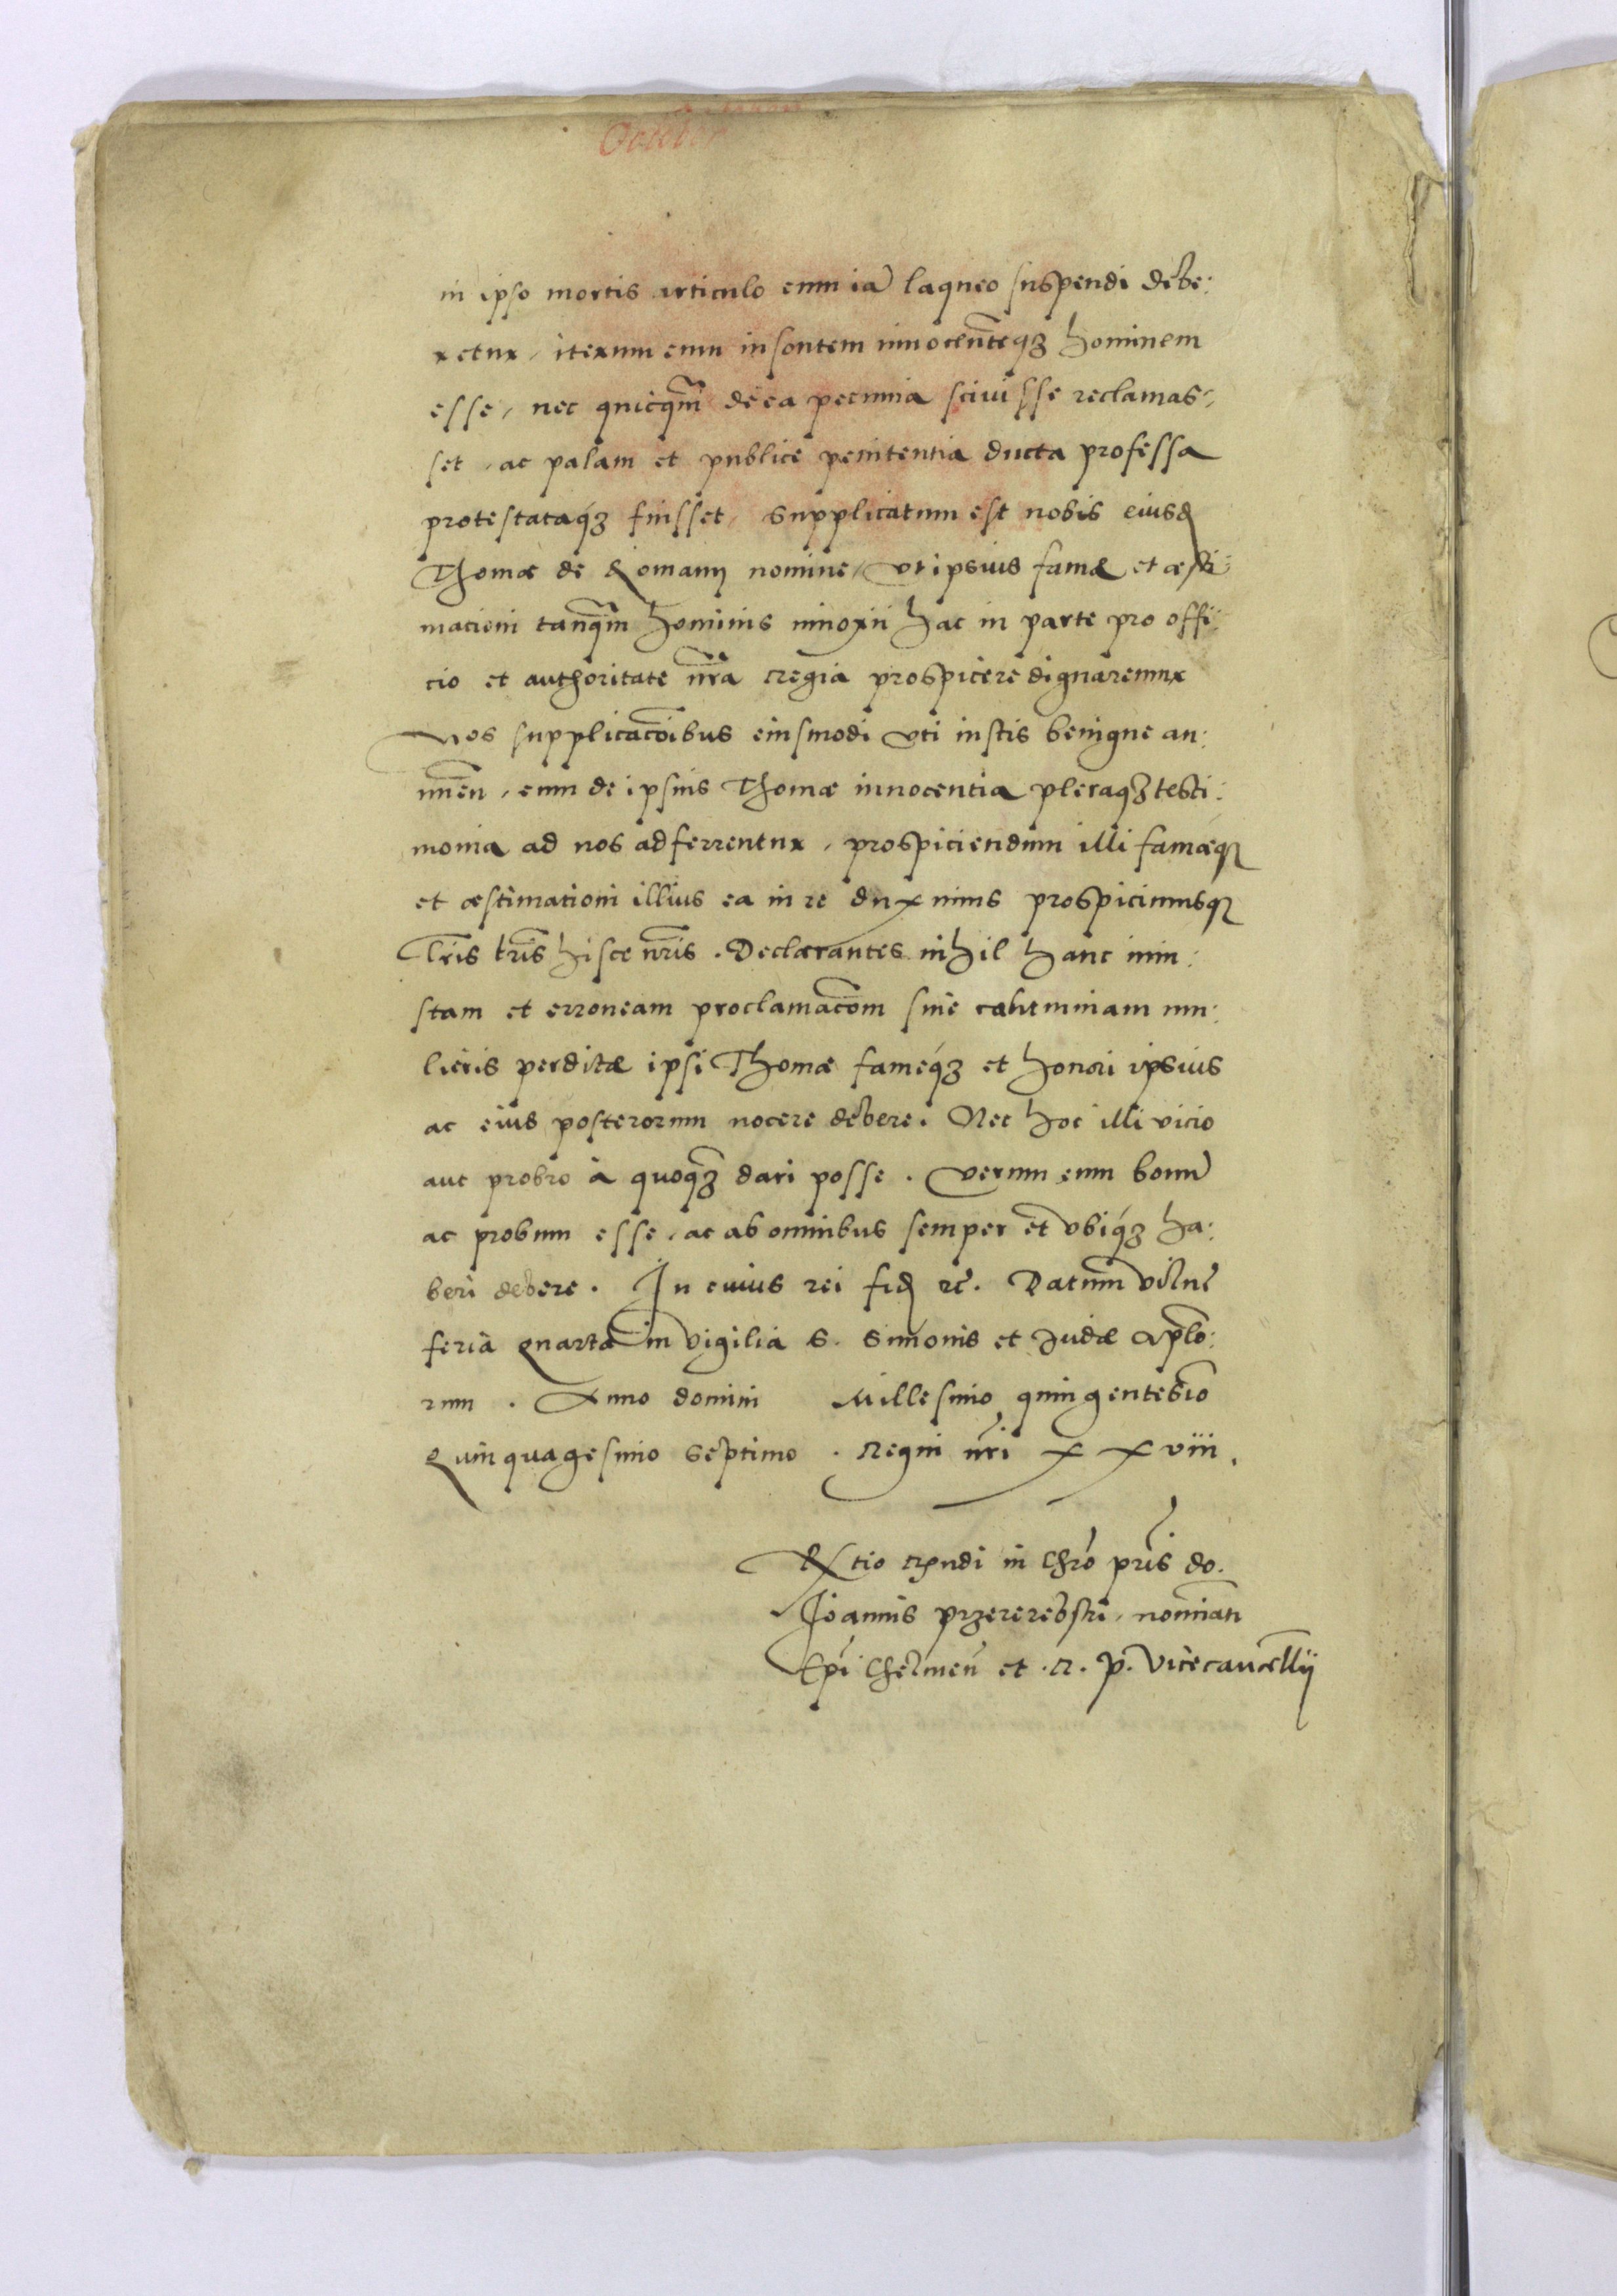 October
in ipso mortis articulo cum iã laqueo suspendi debe:
retur, iterum eum insontem innocent̃eqꝫ hominem
esse, nec quicq̃m de ea pecunia sciuisse reclamas:
set, ac palam et publice penitentia ducta professa
protestataqꝫ fuisset, supplicatum est nobis eiusd̃
Thomæ de Romany nomine, vt ipsius famæ et æsti:
macioni tanq̃m hominis innoxii hac in parte pro offi:
cio et authoritate nr̃a regia prospicere dignaremur
Nos supplicac̃oibus eiusmodi vti iustis benigne an:
nueñ, cum de ipsius Thomæ innocentia pleraqꝫ testi:
monia ad nos adferrentur, prospiciendum illi famæqꝫ
et æstimationi illius ea in re duximus prospicimusqꝫ
lr̃is hisce nr̃is. Declarantes nihil hanc iniu:
stam et erroneam proclamac̃om siue calumniam mu:
lieris perditæ ipsi Thomæ fameqꝫ et honori ipsius
ac eius posterorum nocere debere. Nec hoc illi vicio
aut probro à quoqꝫ dari posse. Verum eum bonũ
ac probum esse, ac ab omnibus semper et vbiqꝫ ha:
beri debere. In cuius rei fid̃ rc̃. Datum Vilnę
feria quarta in vigilia S. Simonis et Judæ Ap̃lo:
rum. Anno domini Millesimo quingentesĩo
Quinquagesimo septimo. Regni nr̃i XXviii.
Rx̃tio R̃ndi in Chr̃o pr̃is do.
Joannis Przerebski, nomĩati
Ep̃i Chelmeñ et. R. P. Vicecancellĩj